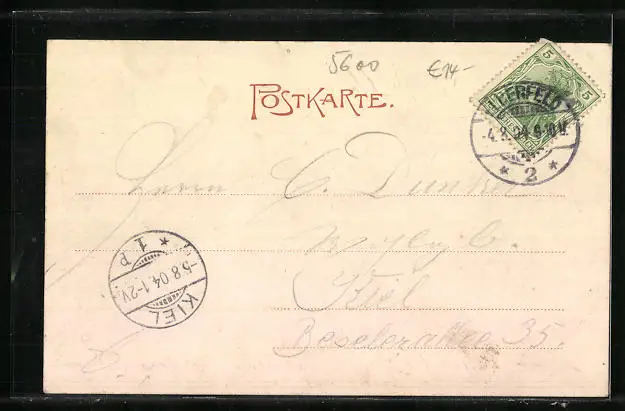 5600
€14,-
POSTKARTE.
5 5
ELBERFELD
-4.8.04.9-10V.
* 2 *
Herrn C. Dunkel
Kiel
Beselerallee 35.
* 1 P *
-5.8.04.1-2V.
KIEL